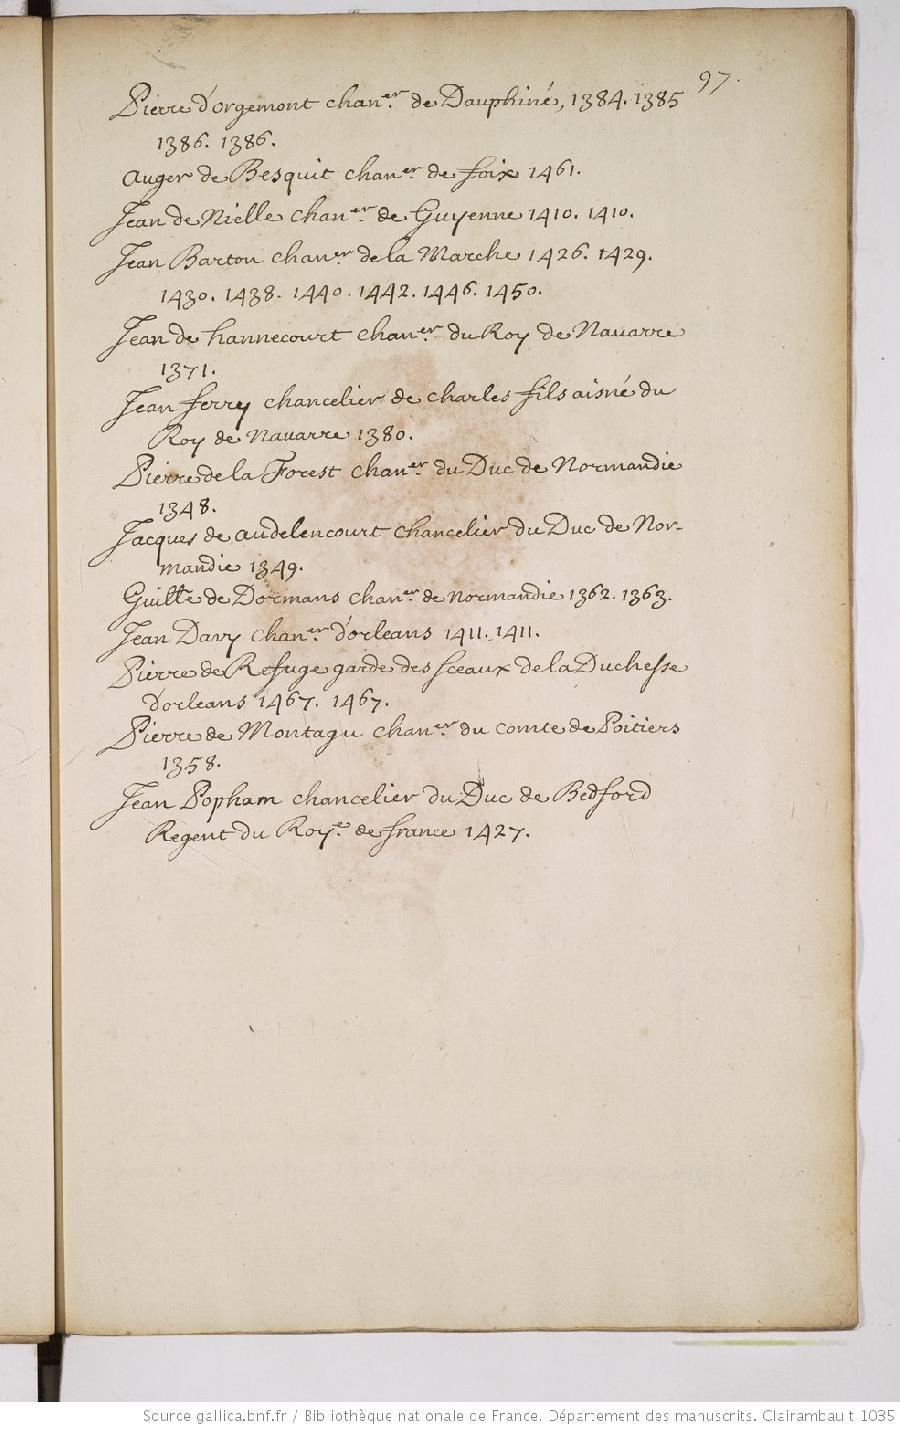 97.
Pierre d'orgemont chan.er de Dauphiné, 1384. 1385
1386. 1386.
Auger de Besquit chan.er de foix 1461.
Jean de Nielle chan.er de Guyenne 1410. 1410.
Jean Barton chan.er de la Marche 1426. 1429.
1430. 1438. 1440. 1442. 1446. 1450.
Jean de hannecourt chan.er du Roy de Nauarre
1371.
Jean ferry chancelier de charles fils aisné du
Roy de Nauarre 1380.
Pierre de la Forest chan.er du Duc de Normandie
1348.
Jacques de audelencourt chancelier du Duc de Nor-
mandie 1349.
Guille de Dormans chan.er de Normandie 1362. 1363.
Jean Davy chan.er d'orleans 1411. 1411.
Pierre de Refuge garde des sceaux de la Duchesse
d'orleans 1467. 1467.
Pierre de Montagu chan.er du comte de Poitiers
1358.
Jean Popham chancelier du Duc de Bedford
Regent du Roy.e de france 1427.
Source gallica.bnf.fr / Bibliothèque nationale de France. Département des manuscrits. Clairambault 1035